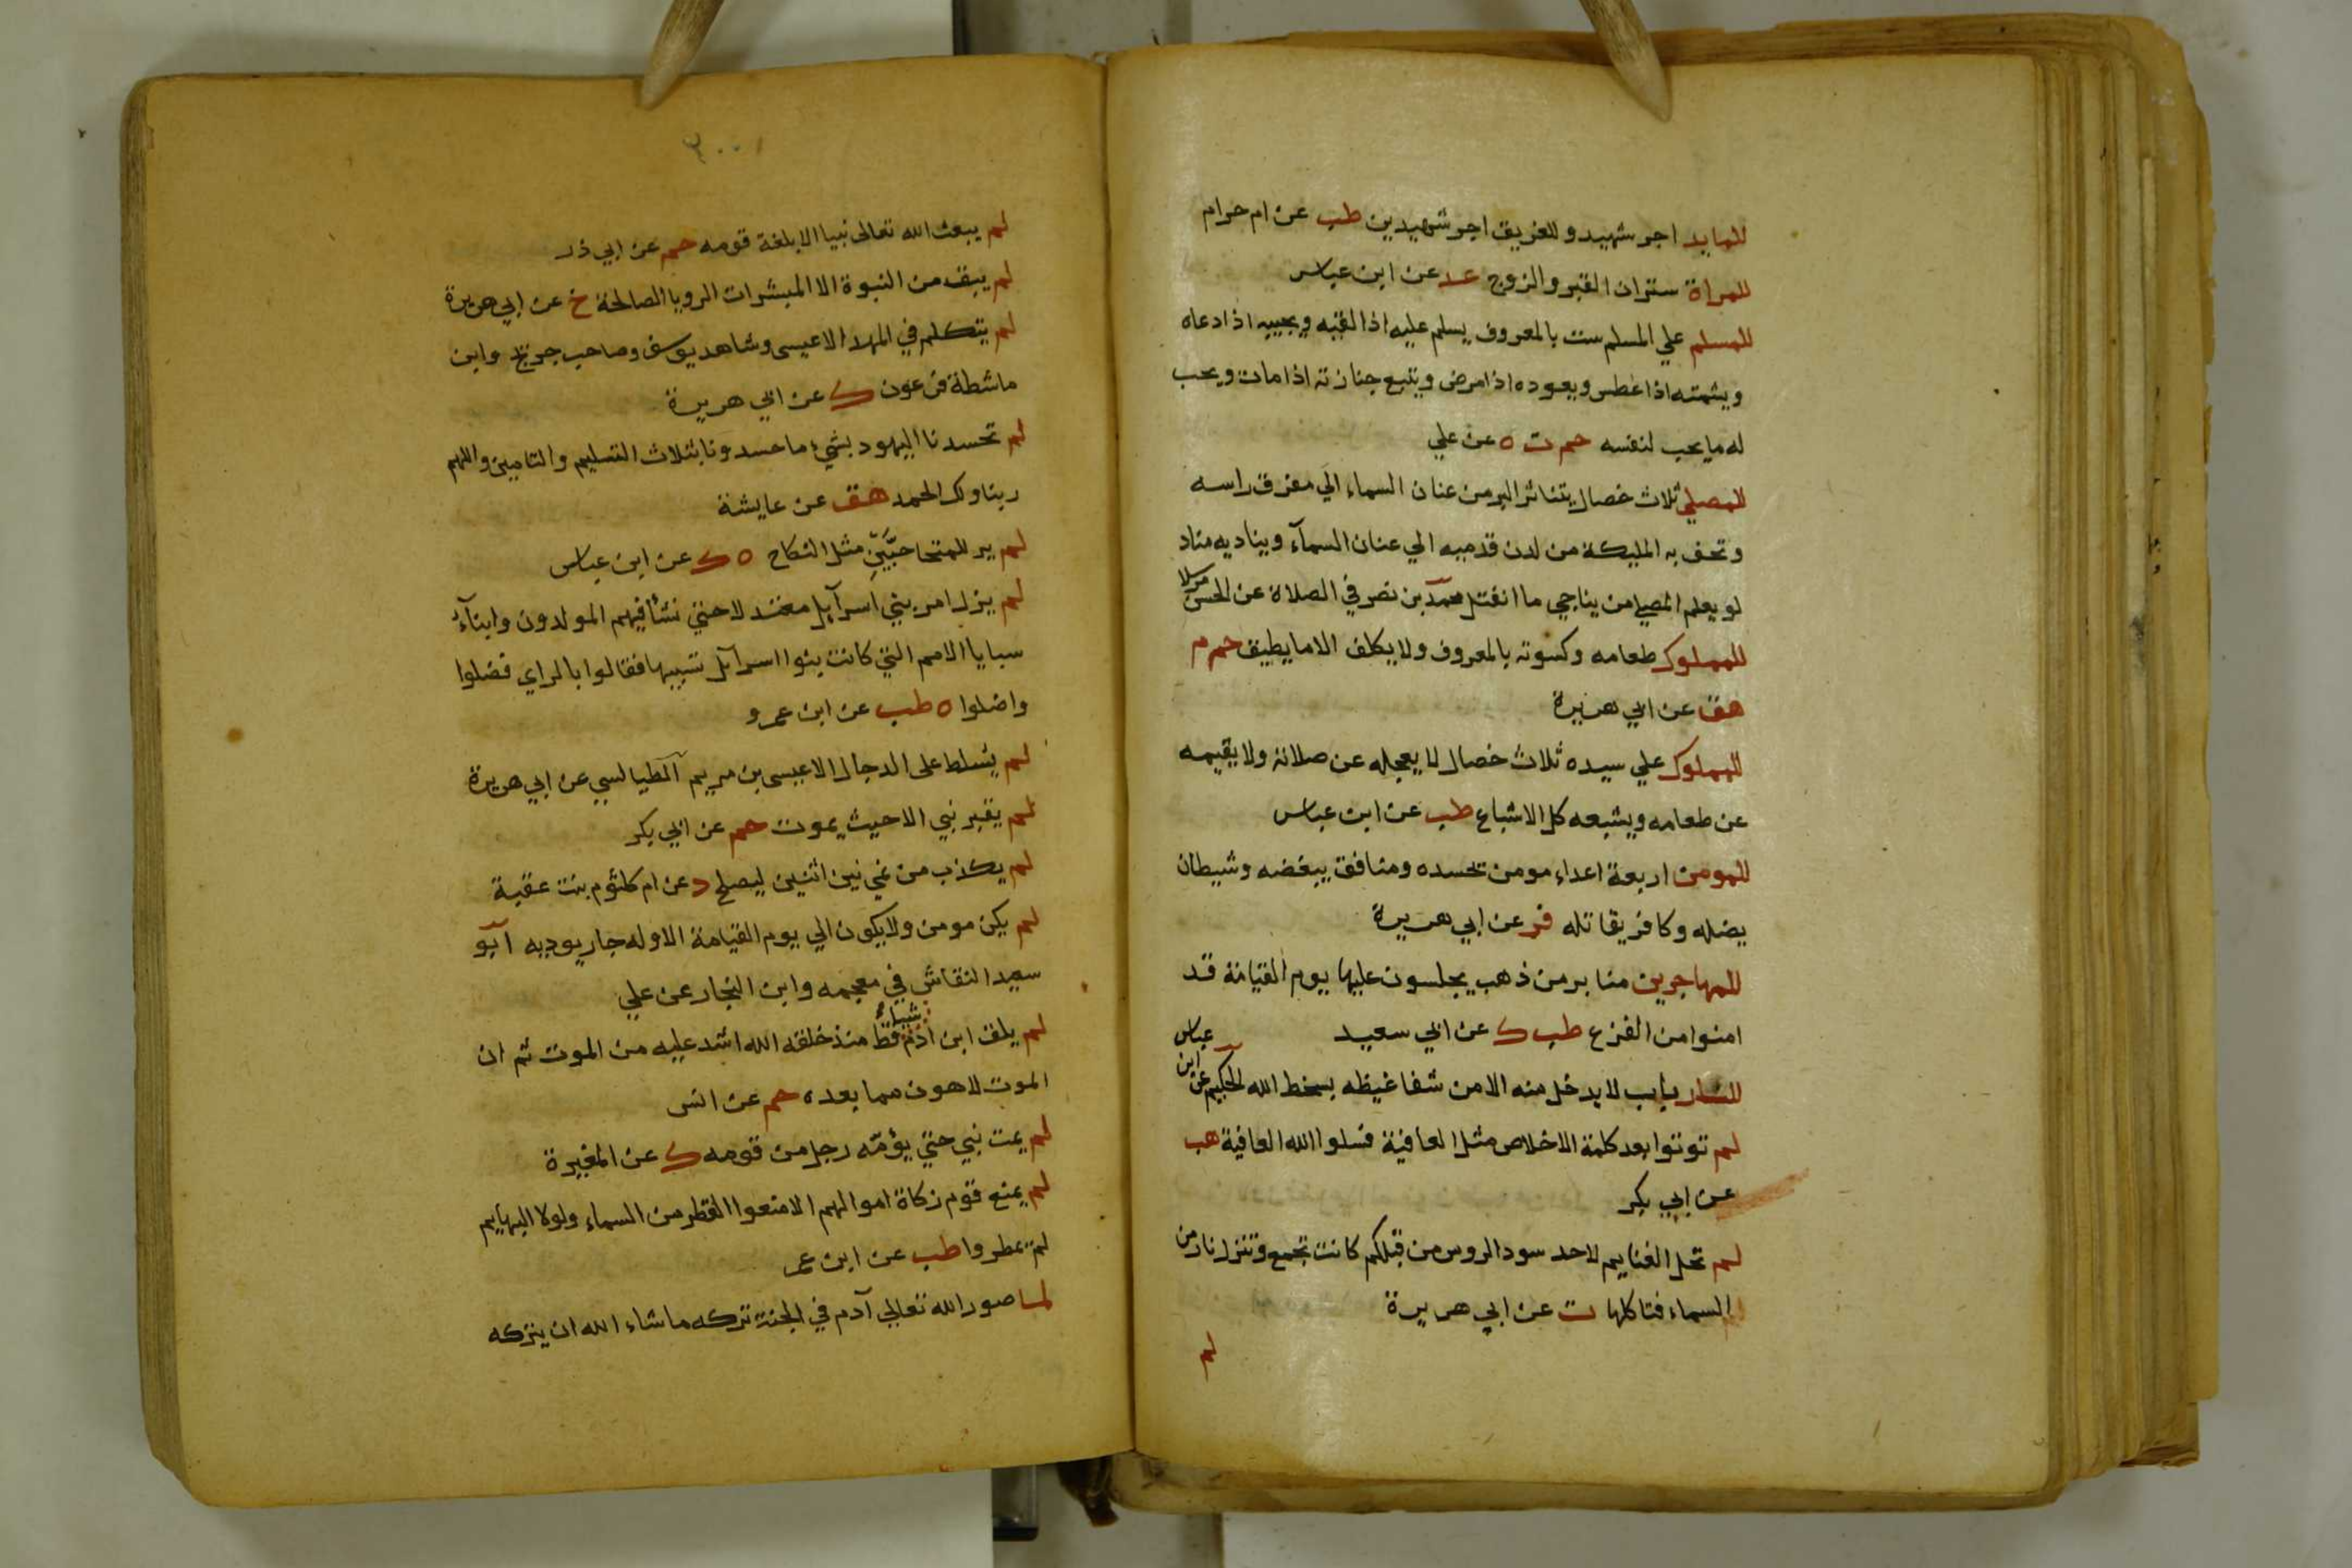 للمايد اجر شهيد وللغريق اجر شهيدين طب عن ام حرام
للمراة ستران القبر والزوج عد عن ابن عباس
للمسلم علي المسلم ست بالمعروف يسلم عليه اذا لقيه ويجيبه اذا دعاه
ويشمته اذا عطس ويعوده اذا مرض ويتبع جنازته اذا مات ويحب
له ما يحب لنفسه حم ت ه عن علي
للمصلي ثلاث خصال يتناثر البر من عنان السماء الي مفرق راسه
وتحف به المليكة من لدن قدميه الي عنان السمآء ويناديه مناد
لو يعلم المصلي من يناجي ما انفتل محمد بن نصر في الصلاة عن الحسن مرسلا
للمملوك طعامه وكسوته بالمعروف ولا يكلف الا ما يطيق حم م
هق عن ابي هريرة
للمملوك علي سيده ثلاث خصال لا يعجله عن صلاته ولا يقيمه
عن طعامه ويشبعه كل الاشباع طب عن ابن عباس
للمومن اربعة اعداء مومن تحسده ومنافق يبغضه وشيطان
يضله وكافر يقاتله فر عن ابي هريرة
للمهاجرين منابر من ذهب يجلسون عليها يوم القيامة قد
امنوا من الفزع طب ك عن ابي سعيد
للنار باب لا يدخل منه الا من شفا غيظه بسخط الله الحكيم عن ابن عباس
لم توتوا بعد كلمة الاخلاص مثل العافية فسلوا الله العافية هب
عن ابي بكر
لم تحل الغنايم لاحد سود الروس من قبلكم كانت تجمع وتنزل نار من
السماء فتاكلها ت عن ابي هريرة
لم
٣٠٠
لم يبعث الله تعالى نبيا الا بلغة قومه حم عن ابي ذر
لم يبق من النبوة الا المبشرات الرويا الصالحة خ عن ابي هريرة
لم يتكلم في المهد الا عيسى وشاهد يوسف وصاحب جريج وابن
ماشطة فرعون ك عن ابي هريرة
لم تحسدنا اليهود بشيء ما حسدونا بثلاث التسليم والتامين واللهم
ربنا ولك الحمد هق عن عايشة
لم ير للمتحابين مثل النكاح ه ك عن ابن عباس
لم يزل امر بني اسرآيل معتدلا حتي نشأ فيهم المولدون وابنآء
سبايا الامم التي كانت بنوا اسرآيل تسبيها فقالوا بالراي فضلوا
واضلوا ه طب عن ابن عمرو
لم يسلط على الدجال الا عيسى بن مريم الطيالسي عن ابي هريرة
لم يقبر نبي الا حيث يموت حم عن ابي بكر
لم يكذب من نمي بين اثنين ليصلح د عن ام كلثوم بنت عقبة
لم يكن مومن ولا يكون الي يوم القيامة الا وله جار يوديه ابو
سعيد النقاش في معجمه وابن النجار عن علي
لم يلق ابن ادم قط شيئا منذ خلقه الله اشد عليه من الموت ثم ان
الموت لاهون مما بعده حم عن انس
لم يمت نبي حتي يؤمه رجل من قومه ك عن المغيرة
لم يمنع قوم زكاة اموالهم الا منعوا القطر من السماء ولولا البهايم
لم تمطروا طب عن ابن عمر
لما صور الله تعالي آدم في الجنة تركه ما شاء الله ان يتركه